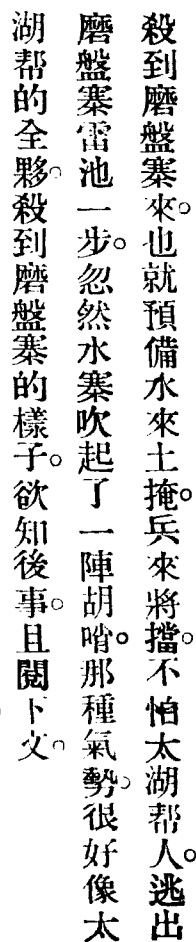 殺到磨盤寨來。也就預備水來土掩。兵來將擋。不怕太湖幇人。逃出
磨盤寨雷池一步。忽然水寨吹起了一陣胡哨。那種氣勢。很好像太
湖帮的全夥。殺到磨盤寨的樣子。欲知後事。且閱下文。